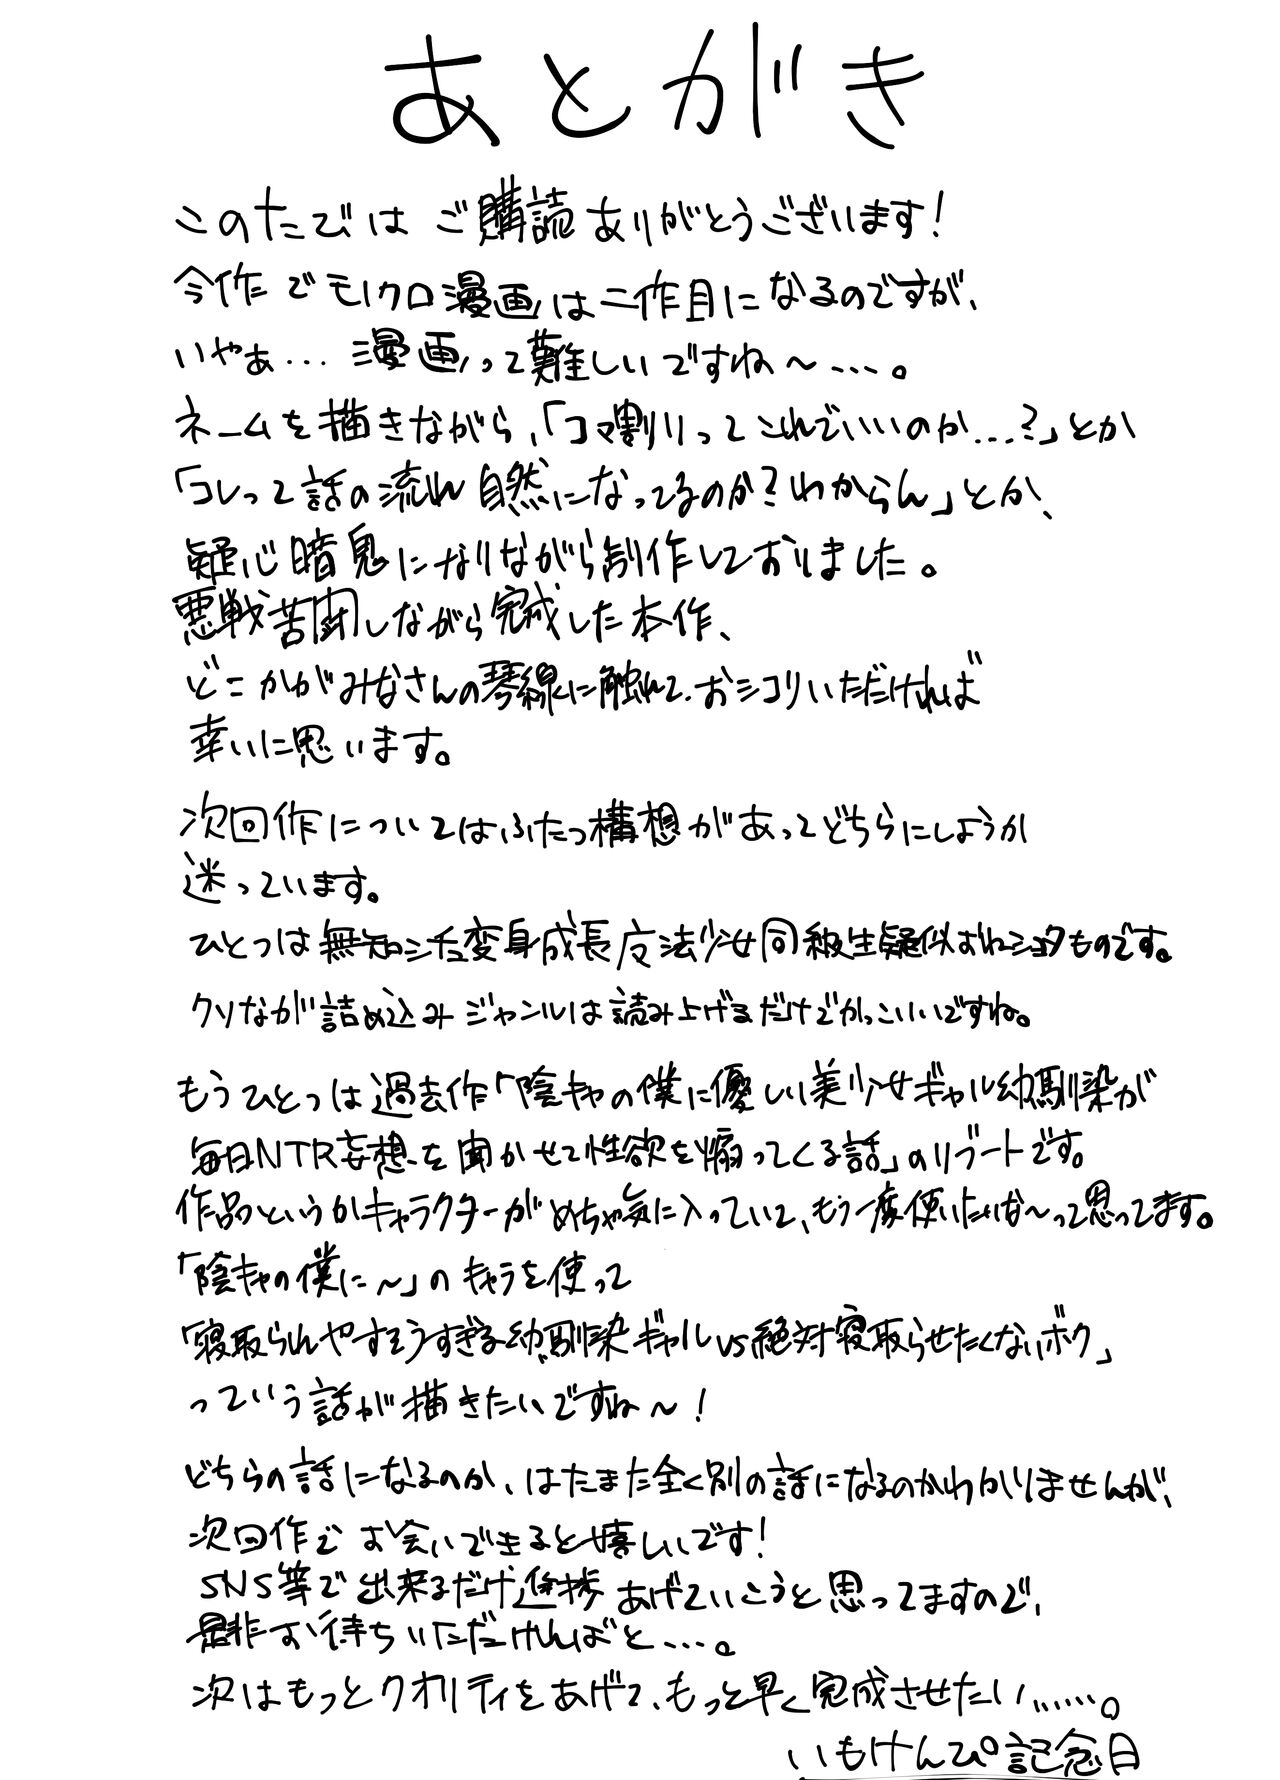 あとがき
このたびは ご購読ありがとうございます!
今作でモノクロ漫画は二作目になるのですが、
いやぁ... 漫画って難しいですね~...。
ネームを描きながら、「コマ割りってこれでいいのか...?」とか
「コレって話の流れ自然になってるのか?わからん」とか、
疑心暗鬼になりながら制作しておりました。
悪戦苦闘しながら完成した本作、
どこかがみなさんの琴線に触れて、おシコりいただければ
幸いに思います。
次回作についてはふたつ構想があってどちらにしようか
迷っています。
ひとつは無知シチュ変身成長魔法少女同級生疑似おねショタものです。
クソなが詰め込みジャンルは読み上げるだけでかっこいいですね。
もうひとつは過去作「陰キャの僕に優しい美少女ギャル幼馴染が
毎日NTR妄想を聞かせて性欲を煽ってくる話」のリブートです。
作品というかキャラクターがめちゃ気に入っていて、もう一度使いたいな~って思ってます。
「陰キャの僕に~」のキャラを使って
「寝取られやすそうすぎる幼馴染ギャルvs絶対寝取らせたくないボク」
っていう話が描きたいですね~!
どちらの話になるのか、はたまた全く別の話になるのかわかりませんが、
次回作でお会いできると嬉しいです!
SNS等で出来るだけ進捗あげていこうと思ってますので、
是非お待ちいただければと...。
次はもっとクオリティをあげて、もっと早く完成させたい......。
いもけんぴ記念日